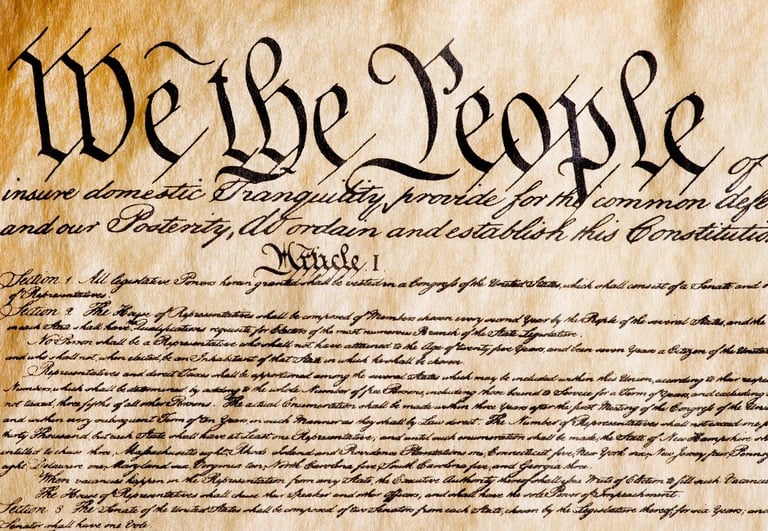 We the People of
insure domestic Tranquility, provide for the common defe
and our Posterity, do ordain and establish this Constitution
Article I.
Section 1. All legislative Powers herein granted shall be vested in a Congress of the United States, which shall consist of a Senate and
of Representatives.
Section 2. The House of Representatives shall be composed of Members chosen every second Year by the People of the several States, and the
in each State shall have the Qualifications requisite for Electors of the most numerous Branch of the State Legislature.
No Person shall be a Representative who shall not have attained to the Age of twenty five Years, and been seven Years a Citizen of the United
and who shall not, when elected, be an Inhabitant of that State in which he shall be chosen.
Representatives and direct Taxes shall be apportioned among the several States which may be included within this Union, according to their respec
Numbers, which shall be determined by adding to the whole Number of free Persons, including those bound to Service for a Term of Years, and excluding
not taxed, three fifths of all other Persons. The actual Enumeration shall be made within three Years after the first Meeting of the Congress of the Unit
and within every subsequent Term of ten Years, in such Manner as they shall by Law direct. The Number of Representatives shall not exceed one
thirty Thousand, but each State shall have at Least one Representative; and until such enumeration shall be made, the State of New Hampshire
entitled to chuse three, Massachusetts eight, Rhode Island and Providence Plantations one, Connecticut five, New York six, New Jersey four, Pennsy
eight, Delaware one, Maryland six, Virginia ten, North Carolina five, South Carolina five, and Georgia three.
When vacancies happen in the Representation from any State, the Executive Authority thereof shall issue Writs of Election to fill such Vacancies
The House of Representatives shall chuse their Speaker and other Officers; and shall have the sole Power of Impeachment.
Section 3. The Senate of the United States shall be composed of two Senators from each State, chosen by the Legislature thereof, for six Years; and
Senator shall have one Vote.